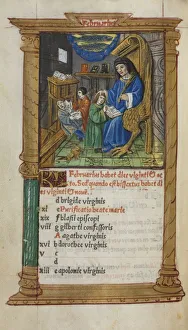 Februarius
Februarius habet dies viginti Oc
to, Sed quando est bissextus habet di
es viginti⁊ noue.
d brigide virginis
xi e Purificatio beate marie
xix f blasii episcopi
viii g gilberti confessoris
A agathe virginis
xvi b dorothee virginis
v c
d
xiii e apolonie virginis